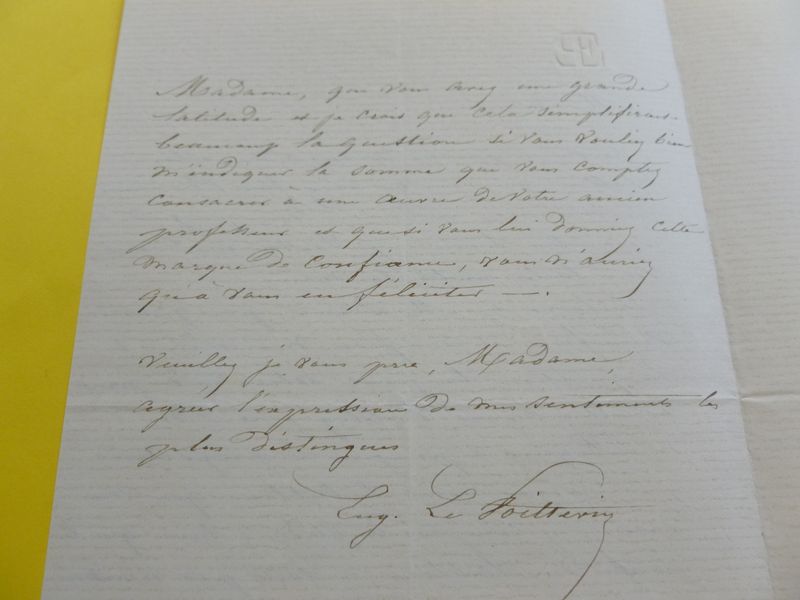 Madame, que vous avez une grande
latitude et je crois que cela simplifierait
beaucoup la question si vous vouliez bien
m'indiquer la somme que vous comptez
consacrer à une œuvre de votre ancien
professeur et que si vous lui donniez cette
marque de confiance, vous n'auriez
qu'à vous en féliciter —.
Veuillez je vous prie, Madame,
agréer l'expression de mes sentiments les
plus distingués
Eug. Le Poittevin